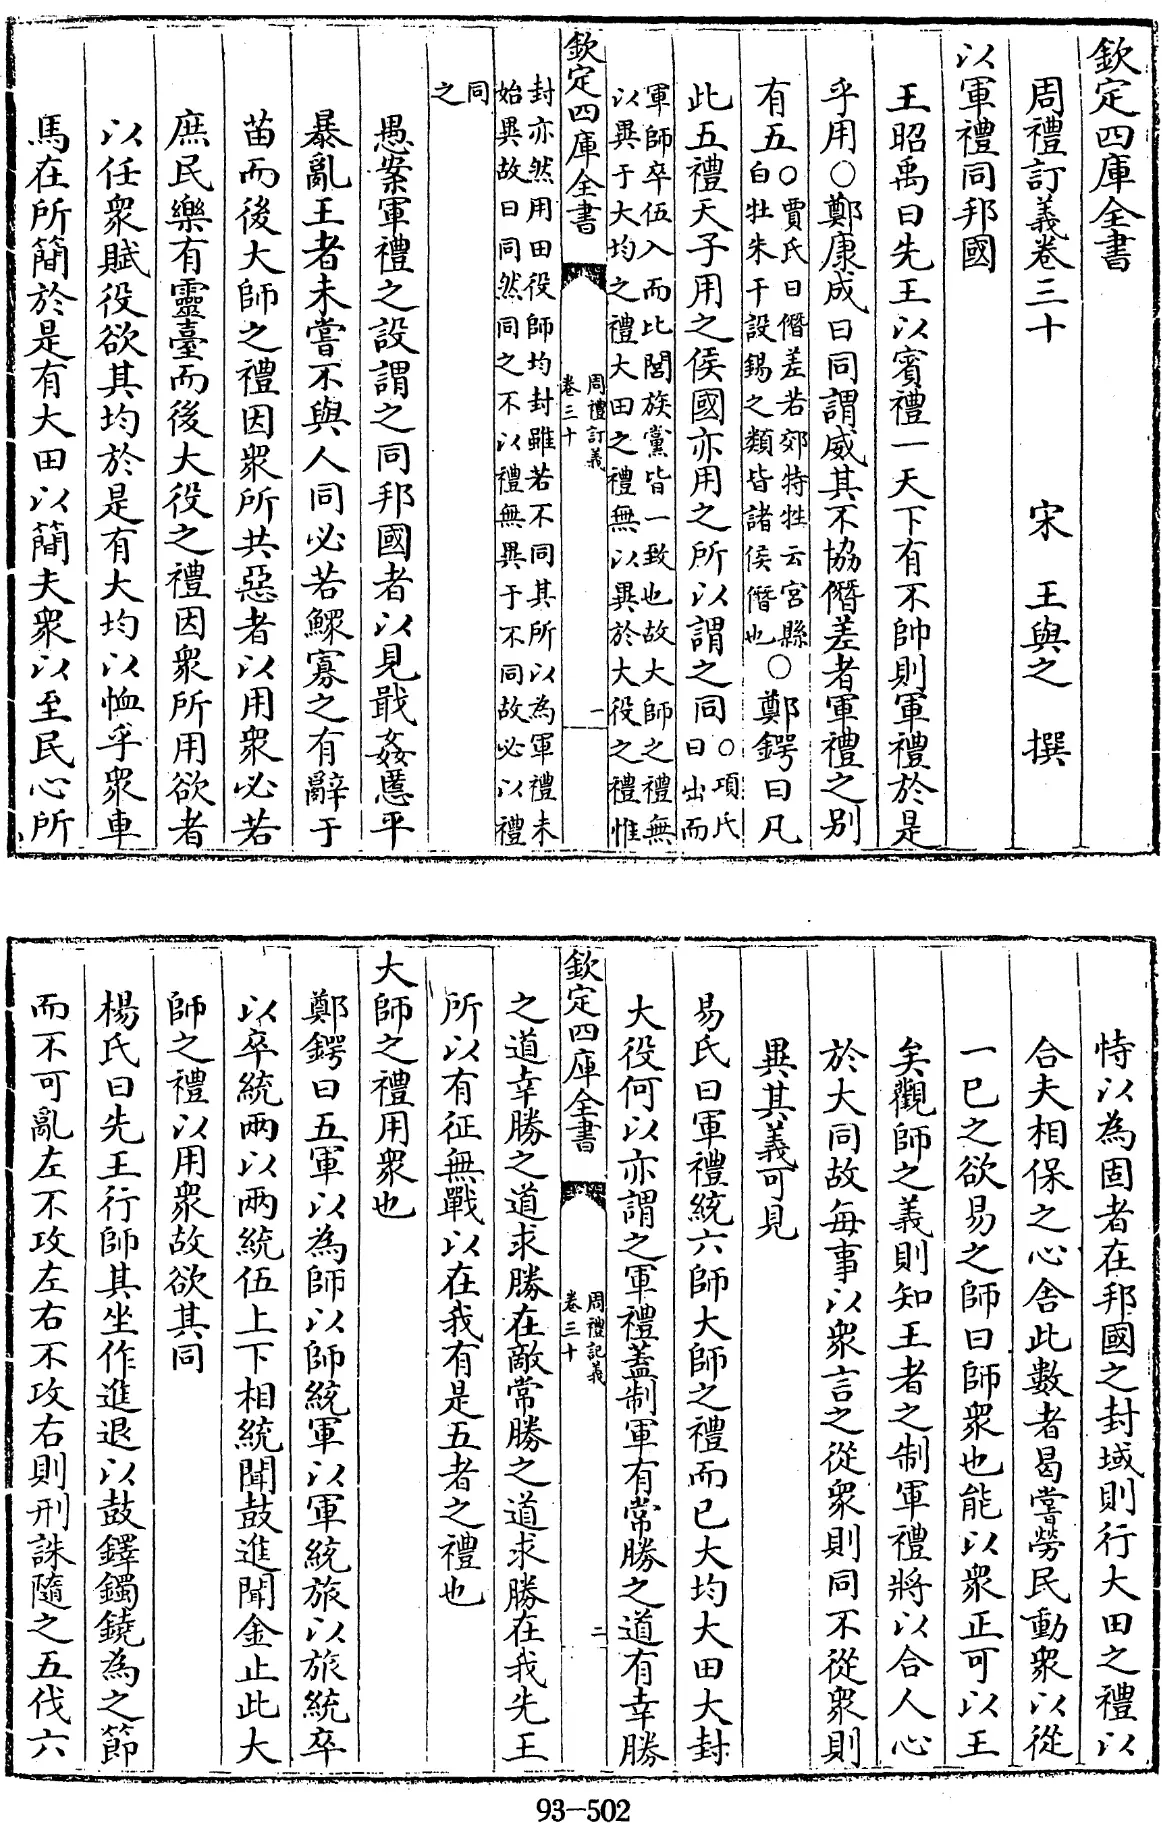 欽定四庫全書
周禮訂義卷三十　宋　王與之　撰
以軍禮同邦國
王昭禹曰先王以賓禮一天下有不帥則軍禮於是
乎用○鄭康成曰同謂威其不協僭差者軍禮之別
有五○賈氏曰僭差若郊特牲云宮縣白牡朱干設錫之類皆諸侯僭也○鄭鍔曰凡
此五禮天子用之侯國亦用之所以謂之同○項氏曰出而
軍師卒伍入而比閭族黨皆一致也故大師之禮無
以異于大均之禮大田之禮無以異於大役之禮惟
欽定四庫全書
周禮訂義
卷三十
一
封亦然用田役師均封雖若不同其所以為軍禮未
始異故曰同然同之不以禮無異于不同故必以禮
同
之
愚案軍禮之設謂之同邦國者以見戢姦慝平
暴亂王者未嘗不與人同必若鰥寡之有辭于
苗而後大師之禮因衆所共惡者以用衆必若
庶民樂有靈臺而後大役之禮因衆所用欲者
以任衆賦役欲其均於是有大均以恤乎衆車
馬在所簡於是有大田以簡夫衆以至民心所
恃以為固者在邦國之封域則行大田之禮以
合夫相保之心舍此數者曷嘗勞民動衆以從
一已之欲易之師曰師衆也能以衆正可以王
矣觀師之義則知王者之制軍禮將以合人心
於大同故每事以衆言之從衆則同不從衆則
異其義可見
易氏曰軍禮統六師大師之禮而已大均大田大封
大役何以亦謂之軍禮蓋制軍有常勝之道有幸勝
欽定四庫全書
周禮記義
卷三十
二
之道幸勝之道求勝在敵常勝之道求勝在我先王
所以有征無戰以在我有是五者之禮也
大師之禮用衆也
鄭鍔曰五軍以為師以師統軍以軍統旅以旅統卒
以卒統兩以兩統伍上下相統聞鼓進聞金止此大
師之禮以用衆故欲其同
楊氏曰先王行師其坐作進退以鼓鐸鐲鐃為之節
而不可亂左不攻左右不攻右則刑誅隨之五伐六
93-502